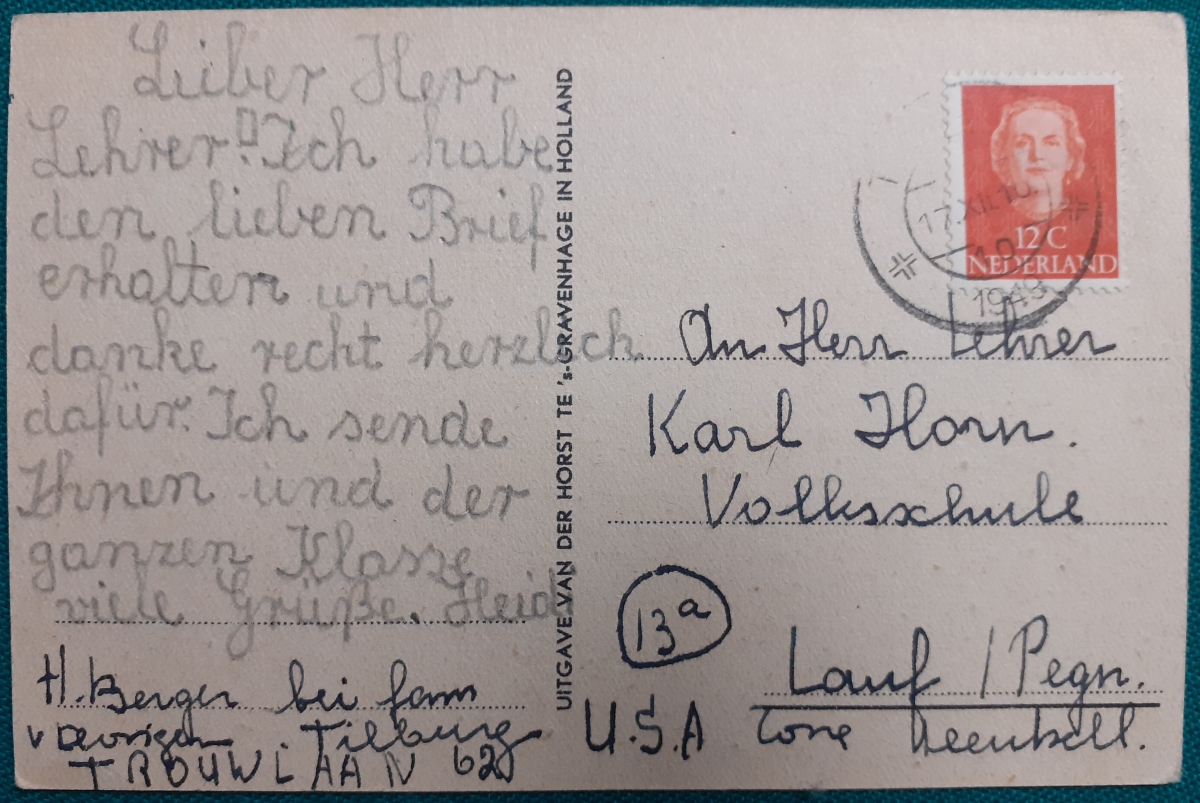 Lieber Herr
Lehrer! Ich habe
den lieben Brief
erhalten und
danke recht herzlich
dafür. Ich sende
Ihnen und der
ganzen Klasze
viele Grüße. Heidi
H. Berger bei fam
v Tilburg
TROUWLAAN 62
UITGAVE VAN DER HORST TE 's-GRAVENHAGE IN HOLLAND
17.XII.10
1949
12 C
NEDERLAND
An Herr Lehrer
Karl Horn.
Volksschule
13a
Lauf / Pegn.
U.S.A Zone